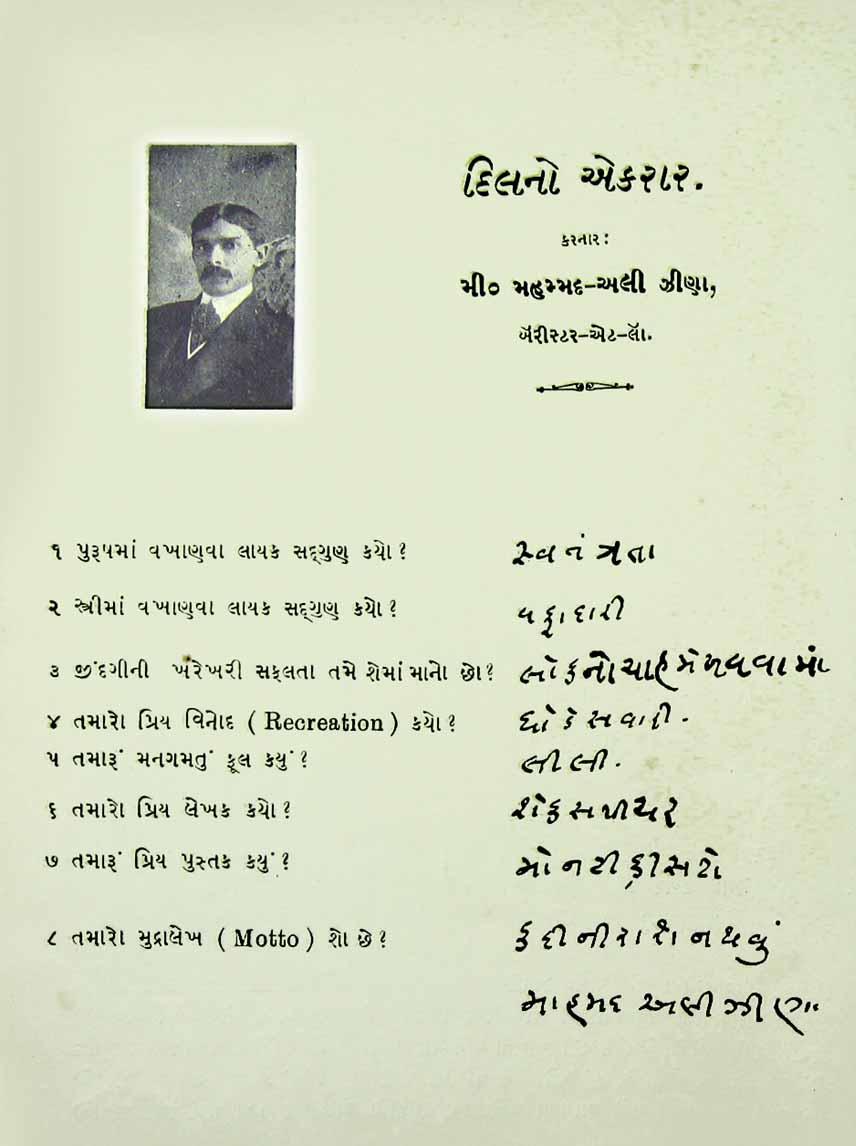 દિલનો એકરાર.
કરનાર:
મી૦ મહમ્મદ-અલી ઝીણા,
બૅરીસ્ટર-એટ-લૅા.
૧ પુરૂષમાં વખાણવા લાયક સદ્‌ગુણ કયો? સ્વતંત્રતા
૨ સ્ત્રીમાં વખાણવા લાયક સદ્‌ગુણ કયો? વફાદારી
૩ જીંદગીની ખરેખરી સફલતા તમે શેમાં માનો છો? લોકનો ચાહ મેળવવામાં
૪ તમારો પ્રિય વિનોદ (Recreation) કયો? ઘોડેસવારી.
૫ તમારૂં મનગમતું ફૂલ કયું? લીલી.
૬ તમારો પ્રિય લેખક કયો? શેકસપીયર
૭ તમારૂં પ્રિય પુસ્તક કયું? મોનટીક્રીસટો
૮ તમારો મુદ્રાલેખ (Motto) શો છે? કદી નીરાશ ન થવું
માહમદ અલી ઝીણા